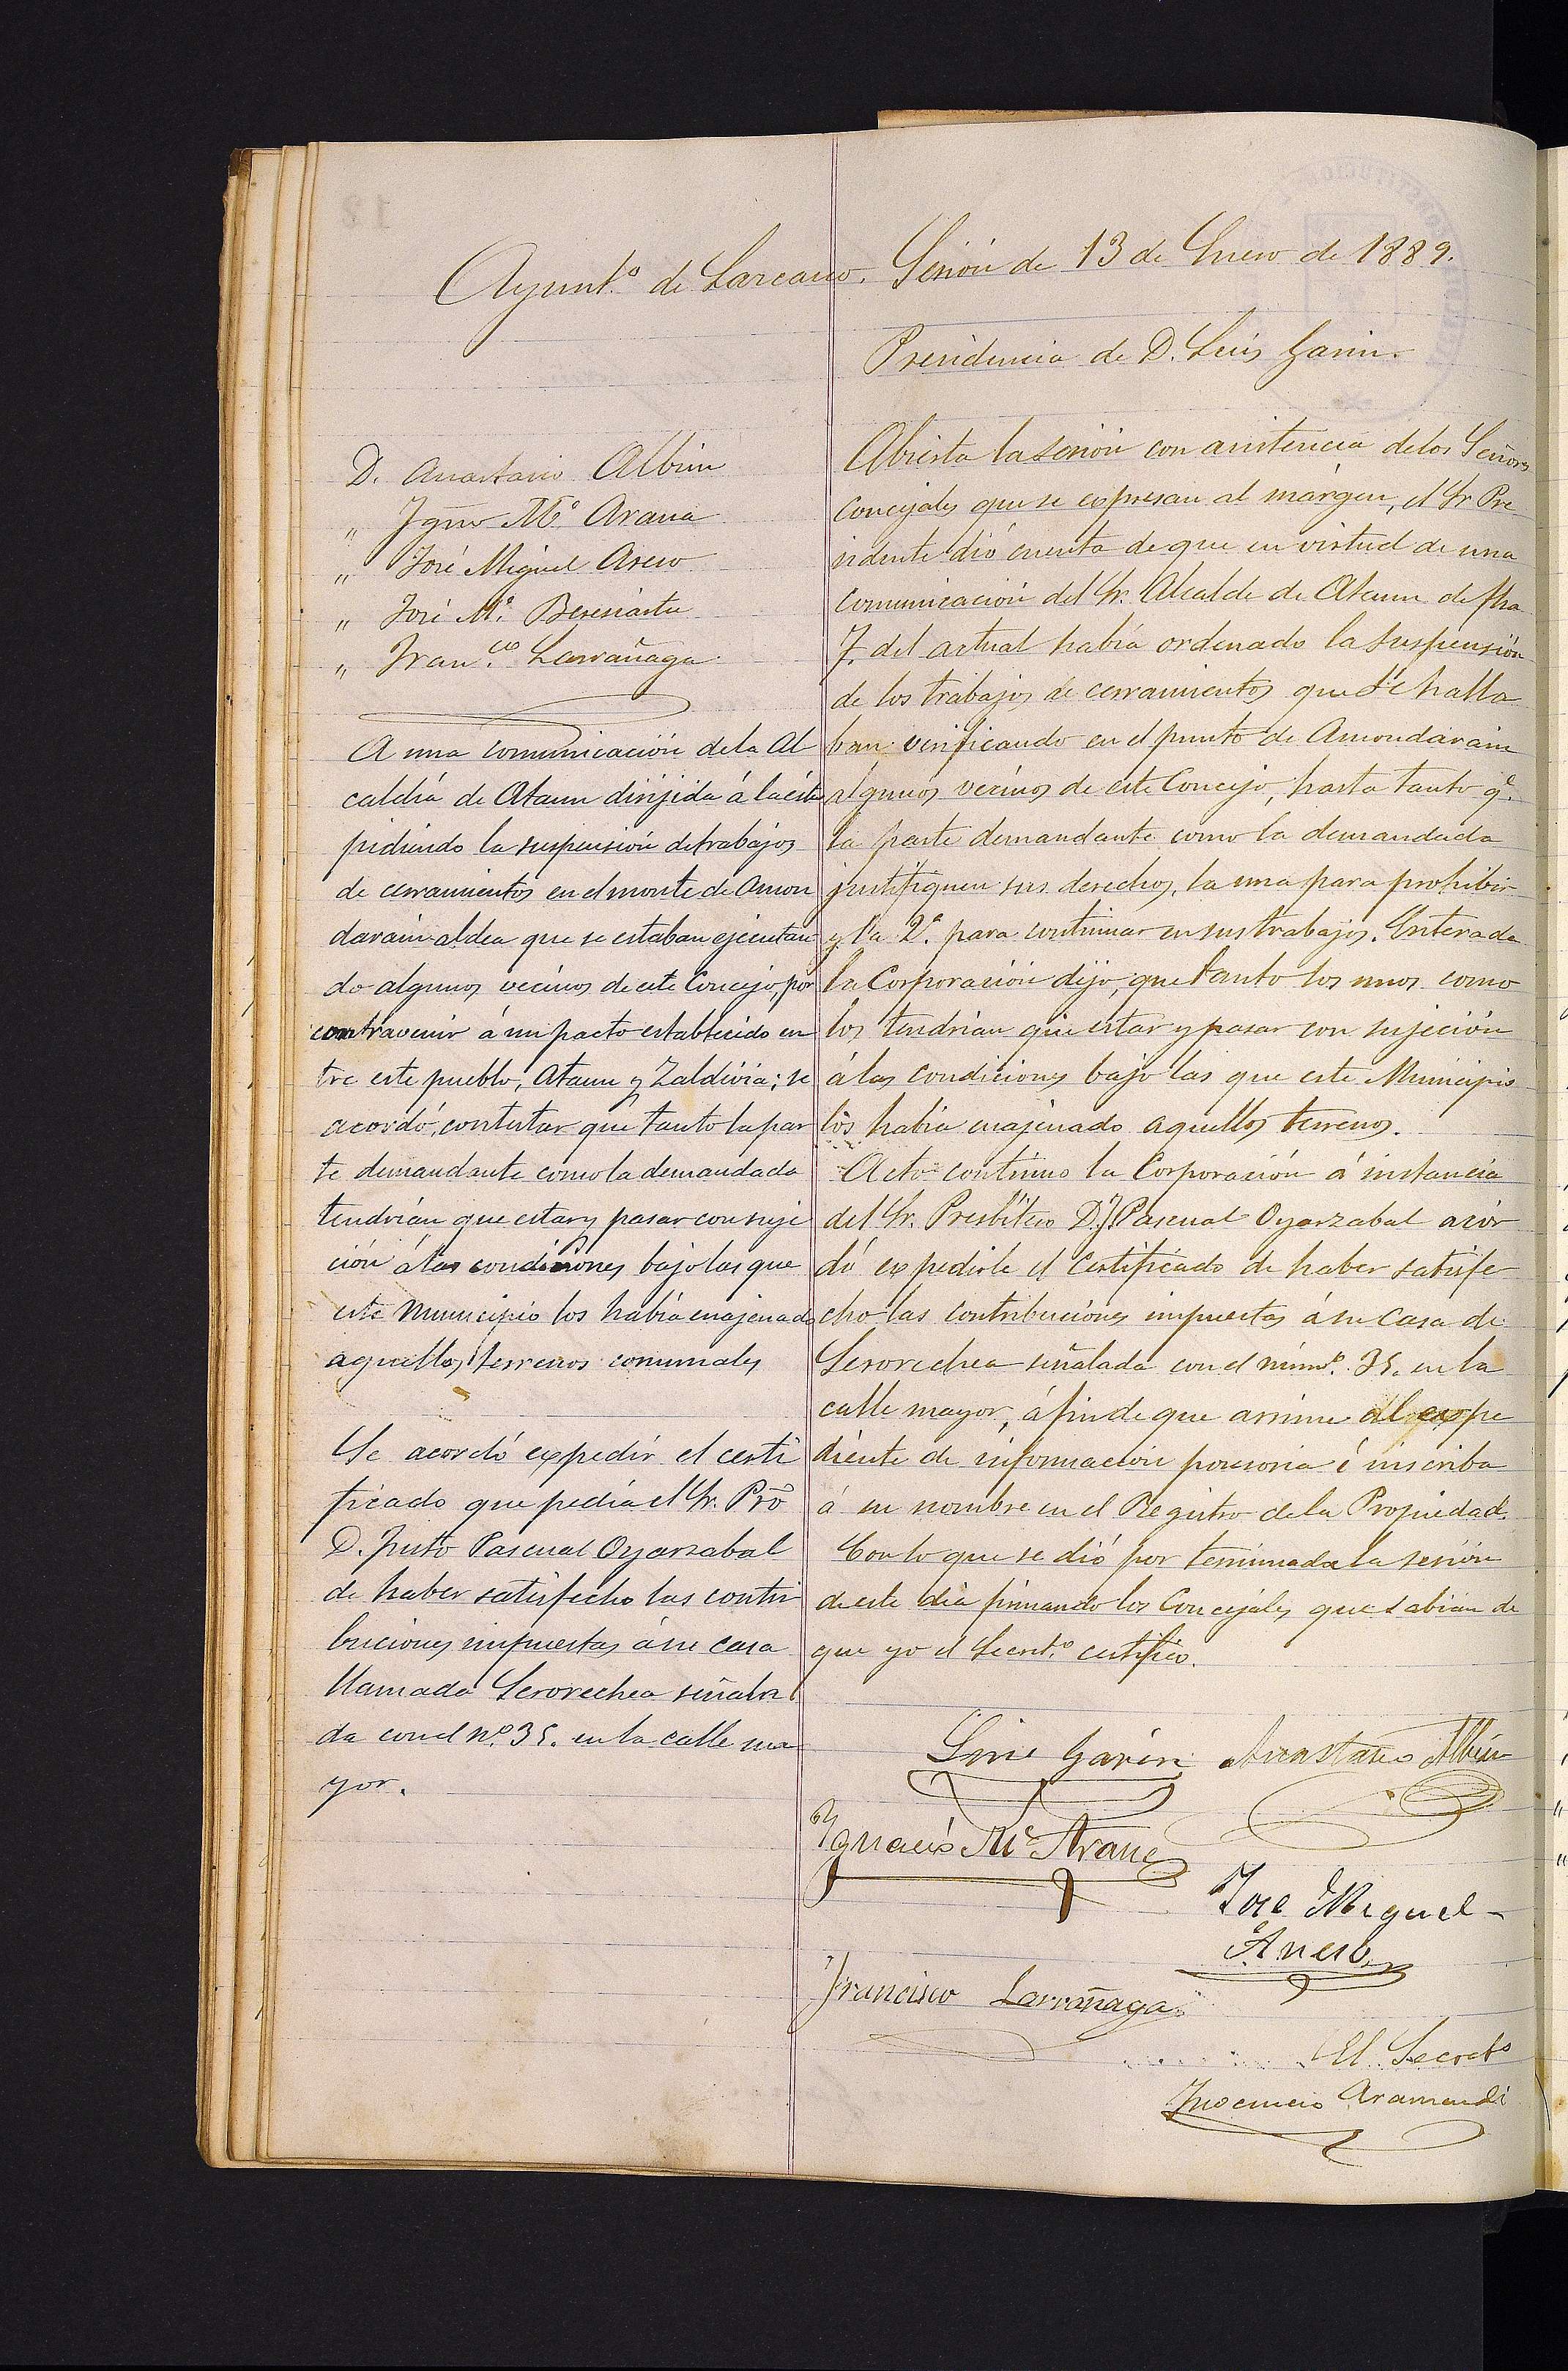 Ayunt.º de Lazcano. Sesión de 13 de Enero de 1889.
Presidencia de D. Luis Garin.
D. Anastasio Albisu
" Ygnº Mª Arana
" José Miguel Aseso
" José Mª Beresiartu
" Fran.co Larrañaga
A una comunicación de la Al
caldía de Ataun dirijida á la ésta
pidiendo la suspensión de trabajos
de cerramientos en el monte de Amon
darain aldea que se estaban ejecutan
do algunos vecinos de este Concejo, por
contravenir á un pacto establecido en
tre este pueblo, Ataun y Zaldivia; se
acordó, contestar que tanto la par
te demandante como la demandada
tendrian que estar y pasar con suje
ción á las condiciones bajo las que
este Municipio los había enajenado
aquellos terrenos comunales
Se acordó expedir el certi
ficado que pedía el Sr. Prō
D. Justo Pascual Oyarzabal
de haber satisfecho las contri
buciones impuestas á su casa
llamada Serorechea señala
da con el nº 35. en la calle ma
yor.
Abierta la sesión con asistencia de los Señores
concejales que se expresan al márgen, el Sr Pre
sidente dió cuenta de que en virtud de una
comunicación del Sr. Alcalde de Ataun de fha
7. del actual había ordenado la suspensión
de los trabajos de cerramientos que se halla
ban verificando en el punto de Amondarain
algunos vecinos de este Concejo, hasta tanto q.e
la parte demandante como la demandada
justifiquen sus derechos, la una para prohibir
y la 2ª. para continuar en sus trabajos. Enterada
la Corporación dijo, que tanto los unos como
los tendrian que estar y pasar con sujeción
á las condiciones bajo las que este Municipio
los habia enajenado aquellos terrenos.
Acto contínuo la Corporación á instancia
del Sr. Presbítero D. J. Pascual Oyarzabal acor
dó expedirle el certificado de haber satisfe
cho las contribuciones impuestas á su casa de
Serorechea señalada con el númº. 35. en la
calle mayor, á fin de que arrime al expe
diente de información posesoria é inscriba
á su nombre en el Registro de la Propiedad.
Con lo que se dió por terminada la sesión
de este dia firmando los Concejales que sabian de
que yo el Secretº. certifico.
Luis Garin Anastasio Albisu
Ygnacio Mª Arana
José Miguel
Aseso
Francisco Larrañaga
El Secretº
Inocencio Aramendi